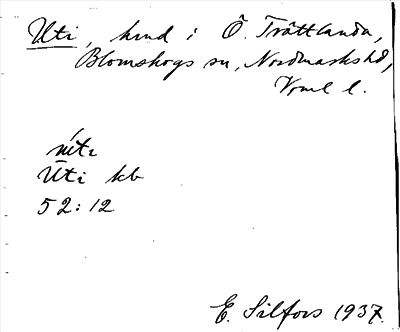 Uti, hmd i Ö. Trättlanda,
Blomskogs sn, Nordmarks hd,
Vrml l.
úti
Uti kb
52:12
E. Silfors 1937.